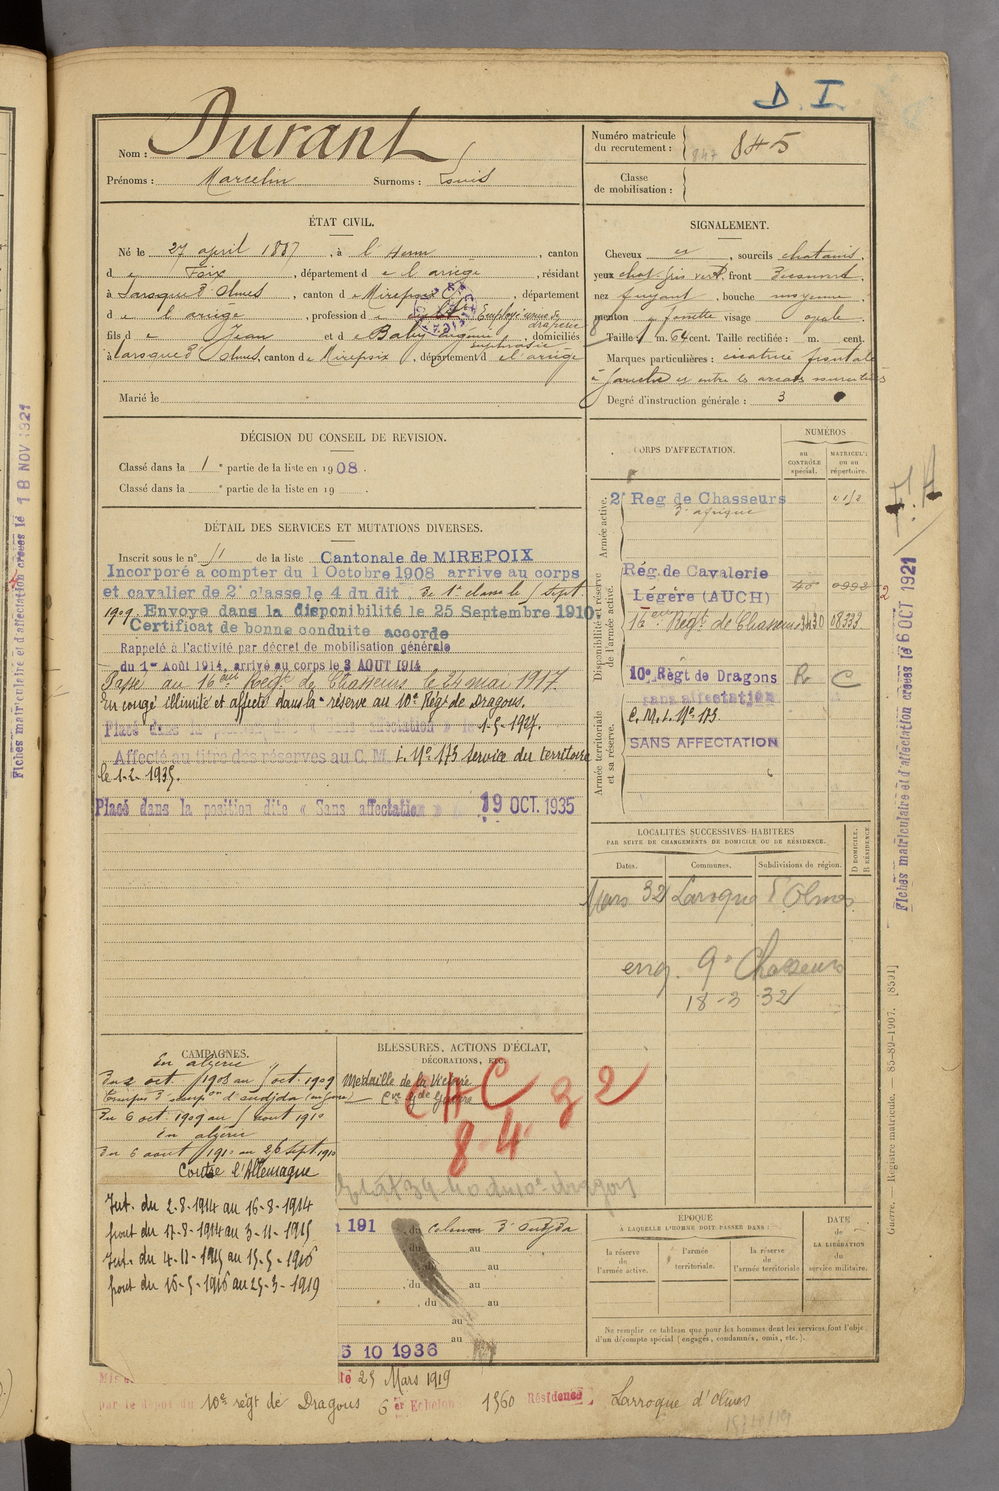 D. I.
Nom : Durant
Prénoms : Marcelin Surnoms : Louis
Numéro matricule
du recrutement : 847 845
Classe
de mobilisation :
ÉTAT CIVIL.
Né le 27 april 1887, à l'herm, canton
de Foix, département de l'ariège, résidant
à Laroque d'Olmes, canton de Mirepoix, département
de l'ariège, profession d Employé usine de
draperie
fils de Jean et de Baby, domiciliés
euphrasie
à Laroque d'Olmes, canton de Mirepoix, département de l'ariège
Marié le
SIGNALEMENT.
Cheveux et, sourcils chatains,
yeux chat. gris vert, front découvert
nez fuyant, bouche moyenne,
menton à fossette visage ovale.
Taille : 1 m. 64 cent. Taille rectifiée : m. cent.
Marques particulières : cicatrice frontale
à gauche et entre les arcades sourcilières
Degré d'instruction générale : 3
DÉCISION DU CONSEIL DE REVISION.
Classé dans la 1e partie de la liste en 1908.
Classé dans la e partie de la liste en 19
DÉTAIL DES SERVICES ET MUTATIONS DIVERSES.
Inscrit sous le n° 51 de la liste Cantonale de MIREPOIX
Incorporé a compter du 1 Octobre 1908 arrive au corps
et cavalier de 2e classe le 4 du dit, de 1e classe le sept.
1909. Envoye dans la disponibilité le 25 Septembre 1910
Certificat de bonne conduite accorde
Rappelé à l'activité par décret de mobilisation générale
du 1er Août 1914, arrivé au corps le 3 AOUT 1914
Passé au 16ème Régt de Chasseurs le 24 mai 1917.
En congé illimité et affecté dans la réserve au 10e Régt de Dragons.
Placé dans la position dite « Sans affectation » le 1-5-1927.
Affecté au titre des réserves au C. M. I. N° 173 service du territoire
le 1-2-1935.
Placé dans la position dite « Sans affectation » 19 OCT. 1935
CORPS D'AFFECTATION.
NUMÉROS
au
CONTRÔLE
spécial.
MATRICULE
ou au
répertoire.
Armée active.
2e Reg de Chasseurs
d'afrique
Disponibilité et réserve
de l'armée active.
Rég. de Cavalerie
Légère (AUCH) 40 0992
16ème Régt de Chasseurs 3430 08333
10e Règt de Dragons R C
sans affectation
Armée territoriale
et sa réserve.
C. M. I. N° 173.
SANS AFFECTATION
LOCALITÉS SUCCESSIVES HABITÉES
PAR SUITE DE CHANGEMENTS DE DOMICILE OU DE RÉSIDENCE.
Dates. Communes. Subdivisions de région. D. DOMICILE. R. RÉSIDENCE.
Mars 32 Laroque d'Olmes
enq. 9e Chasseurs
18-3 32
CAMPAGNES.
En algérie
du 2 oct. 1908 au oct. 1909
du 6 oct. 1909 au aout 1910
En algérie
du 6 aout 1910 au 26 sept 1910
Contre l'Allemagne
Int. du 2-8-1914 au 16-8-1914
front du 17-8-1914 au 3-11-1915
Int. du 4-11-1915 au 15-5-1916
front du 16-5-1916 au 25-3-1919
BLESSURES, ACTIONS D'ÉCLAT,
DÉCORATIONS, ETC.
Médaille de la Victoire
CHC 32
8-4-
191 du au
du au
du au
du au
au
au
5 10 1936
ÉPOQUE
À LAQUELLE L'HOMME DOIT PASSER DANS :
la réserve
de
l'armée active.
l'armée
territoriale.
la réserve
de
l'armée territoriale
DATE
de
LA LIBÉRATION
du
service militaire.
Ne remplir ce tableau que pour les hommes dont les services font l'objet
d'un décompte spécial (engagés, condamnés, omis, etc.).
le 25 Mars 1919
par le dépôt du 10e régt de Dragons 6 Echelon 1560 Résidence Larroque d'Olmes
Fiches matriculaire et d'affectation créées le 6 OCT 1921
Guerre. — Registre matricule. — 85-89-1907. [8591]
Fiches matriculaire et d'affectation créées le 18 NOV 1921